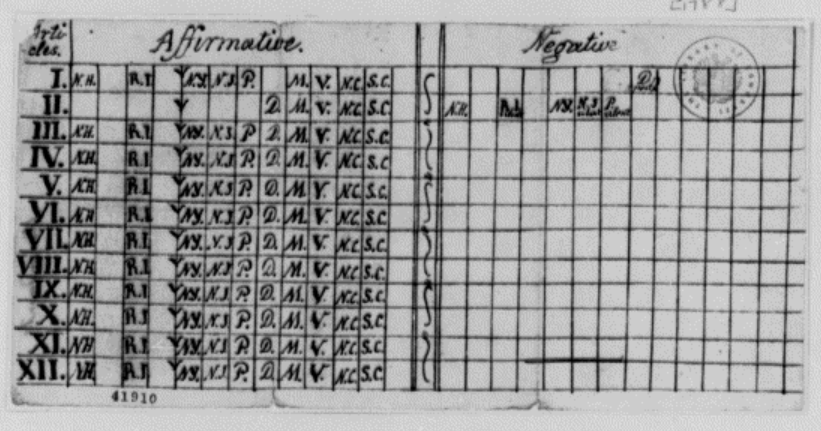 Arti
cles. Affirmative. Negative
I. N.H. R.I. N.Y. N.J. P. M. V. N.C. S.C. D.
II. D. M. V. N.C. S.C. N.H. N.Y. N.J. P.
III. N.H. R.I. N.Y. N.J. P. D. M. V. N.C. S.C.
IV. N.H. R.I. N.Y. N.J. P. D. M. V. N.C. S.C.
V. N.H. R.I. N.Y. N.J. P. D. M. V. N.C. S.C.
VI. N.H. R.I. N.Y. N.J. P. D. M. V. N.C. S.C.
VII. N.H. R.I. N.Y. N.J. P. D. M. V. N.C. S.C.
VIII. N.H. R.I. N.Y. N.J. P. D. M. V. N.C. S.C.
IX. N.H. R.I. N.Y. N.J. P. D. M. V. N.C. S.C.
X. N.H. R.I. N.Y. N.J. P. D. M. V. N.C. S.C.
XI. N.H. R.I. N.Y. N.J. P. D. M. V. N.C. S.C.
XII. N.H. R.I. N.Y. N.J. P. D. M. V. N.C. S.C.
41910